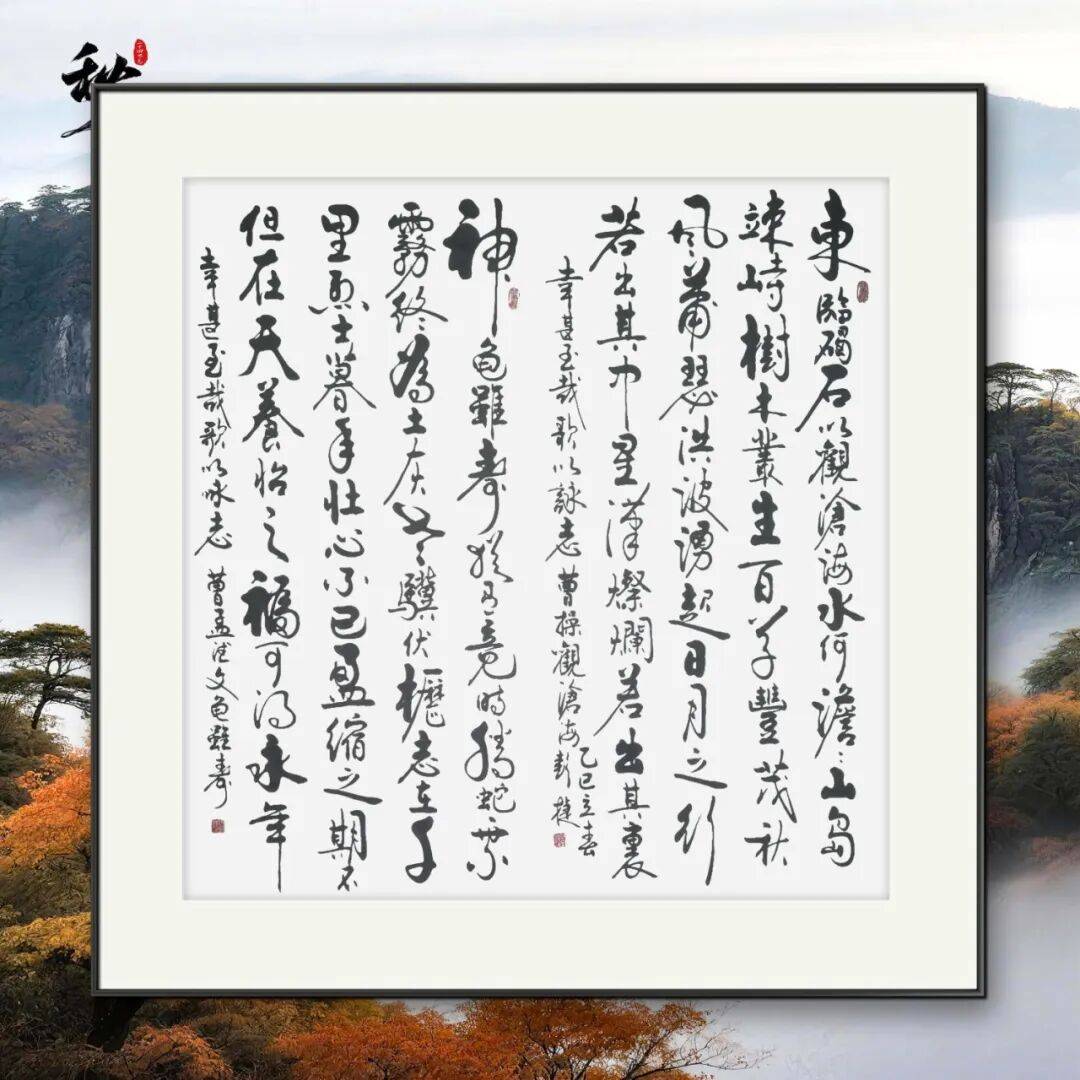 秋
東臨碣石以觀滄海水何澹々山島
竦峙樹木叢生百草豐茂秋
風蕭瑟洪波湧起日月之行
若出其中星漢燦爛若出其裏
幸甚至哉歌以詠志 曹操觀滄海彭捷
乙巳立春
神龜雖壽猶有竟時騰蛇乘
霧終為土灰老驥伏櫪志在千
里烈士暮年壯心不已盈縮之期不
但在天養怡之福可得永年
幸甚至哉歌以咏志 曹孟德文龜雖壽